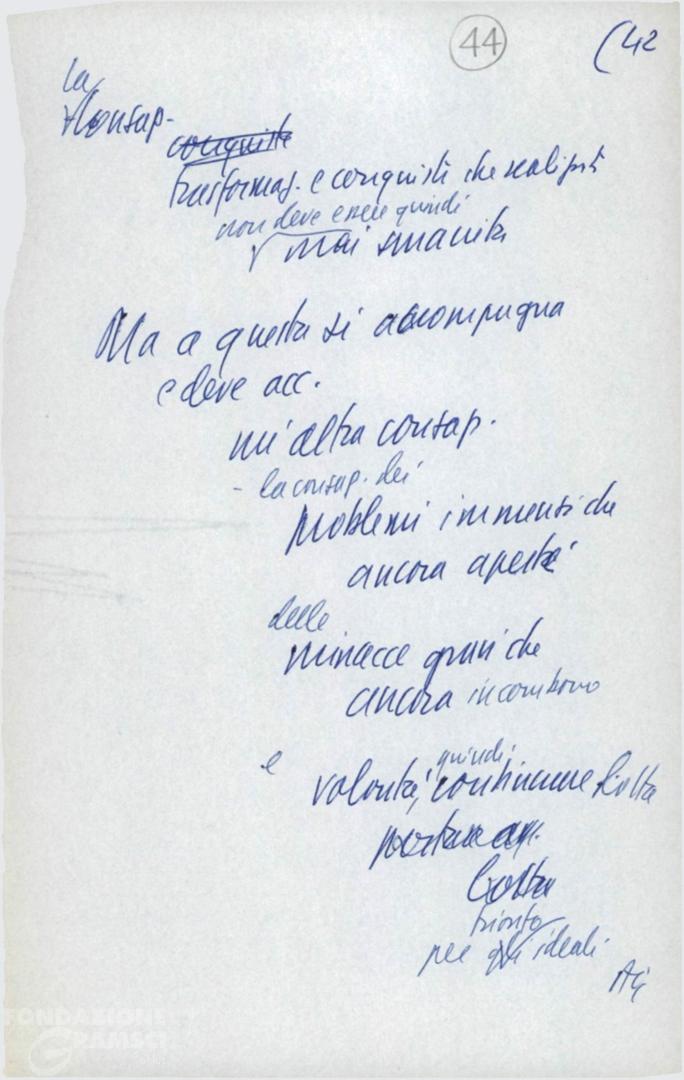 44
(42
la
consap.
conquiste
trasformaz. e conquiste che realizzate
non deve essere quindi
mai smarrita
Ma a questa si accompagna
e deve acc.
un'altra consap.
- la consap. dei
problemi immensi che
ancora aperti
delle
minacce gravi che
ancora incombono
e
volontà, quindi, continuare lotta
portare av.
lotta
trionfo
per gli ideali
FONDAZIONE
GRAMSCI